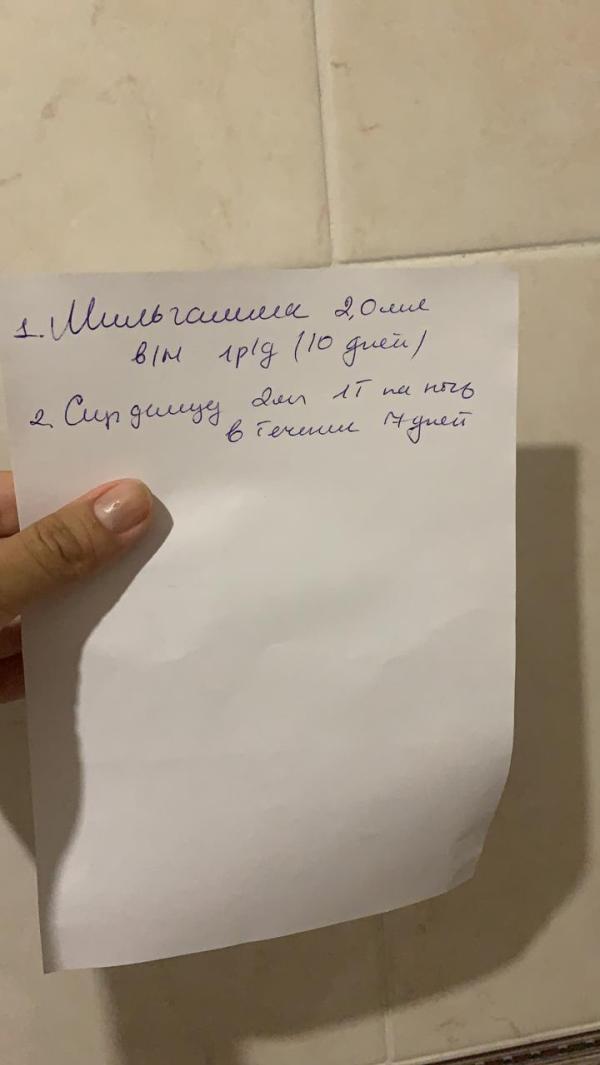 1. Мильгамма 2,0 мл
в/м 1р/д (10 дней)
2. Сирдалуд 2мг 1т на ночь
в течении 7 дней